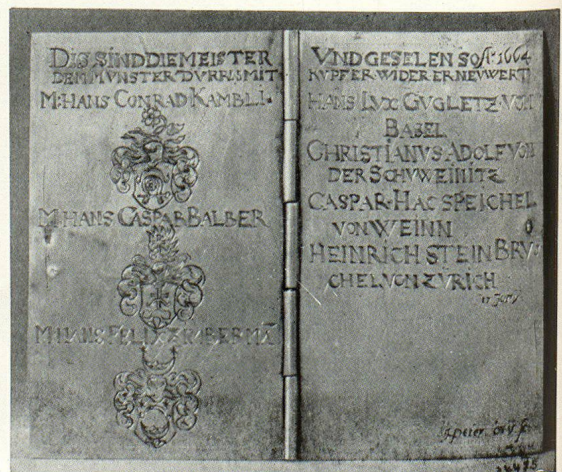 DIS SIND DIE MEISTER
DEM MVNSTER DVRRN MIT
M: HANS CONRAD KAMBLI.
M. HANS CASPAR BALBER
M. HANS FELIX
VND GESELEN SO 1664
KVPFER WIDER ERNEUWERT
HANS LVX GVGLETZ VON
BABEL
CHRISTIANVS ADOLF VON
DER SCHVWEINITZ
CASPAR HAGSPEICHEL
VON WEINN
HEINRICH STEINBRV:
CHEL VON ZVRICH